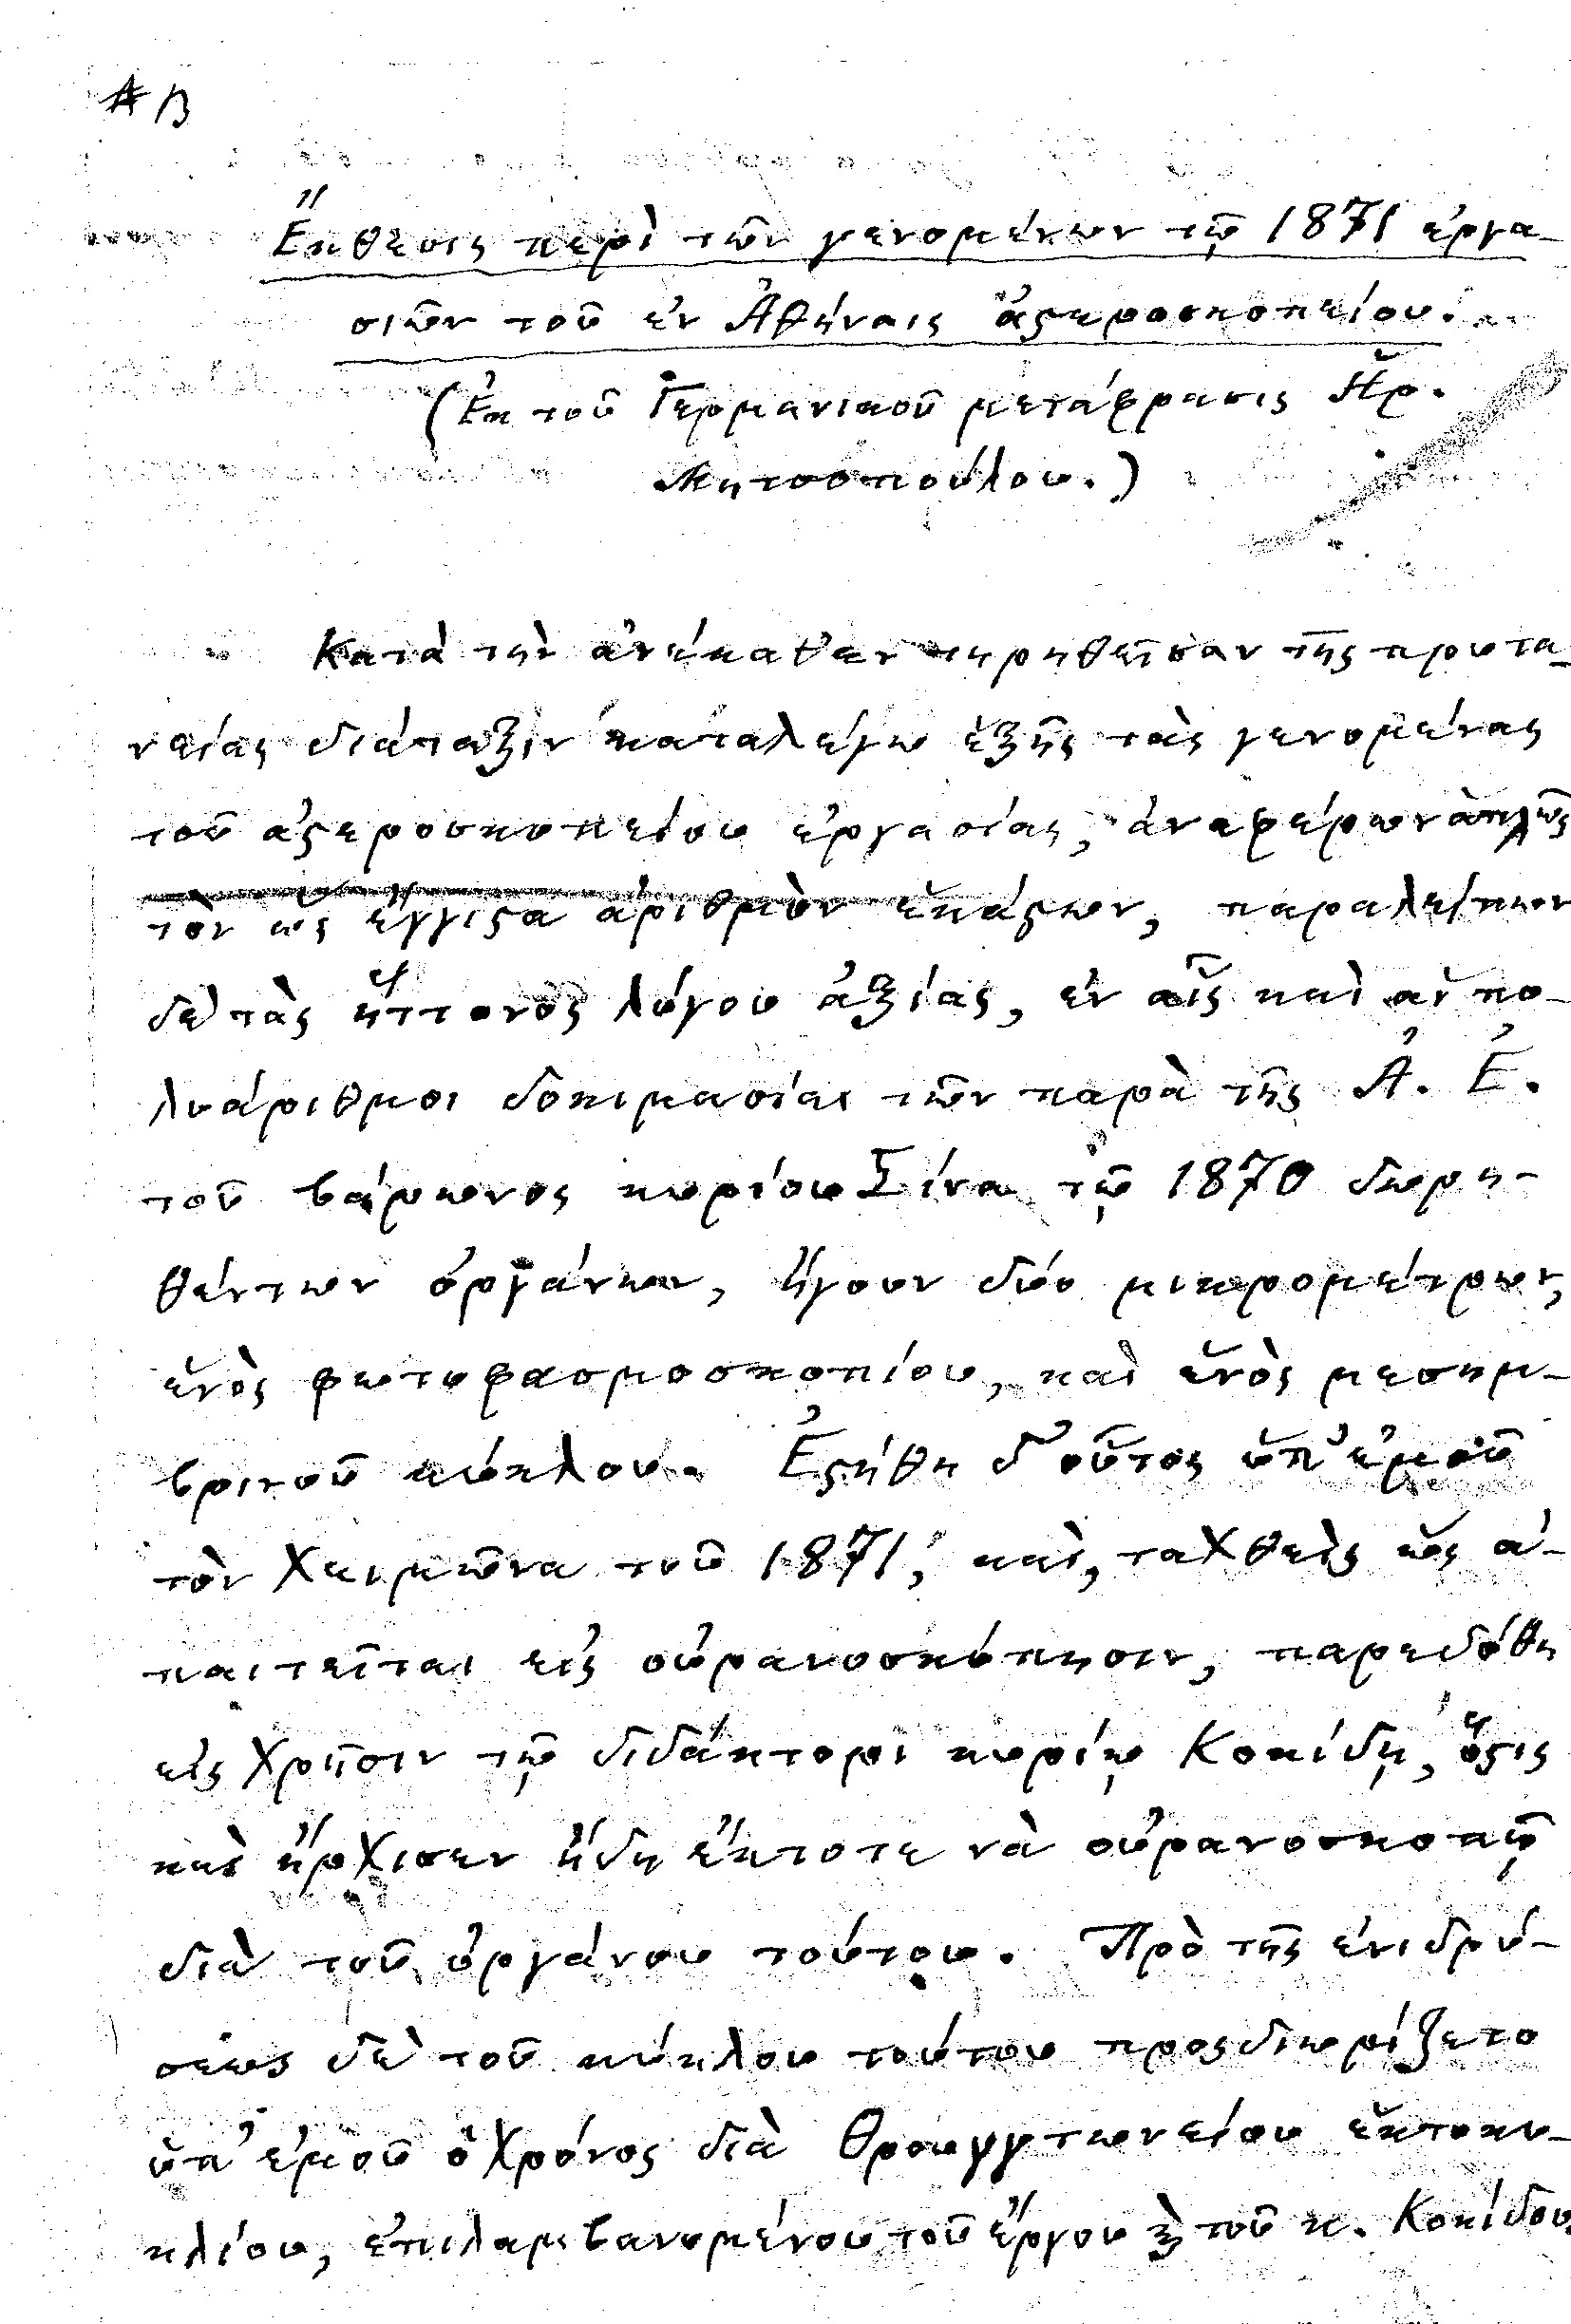 Α Β
Ἔκθεσις περὶ τῶν γενομένων τῷ 1871 ἐργα-
σιῶν τοῦ ἐν Ἀθήναις ἀϛεροσκοπείου.
(Ἐκ τοῦ Γερμανικοῦ μετάφρασις Ἡρ.
Μητσοπούλου.)
Κατὰ τὴν ἀνέκαθεν τηρηθεῖσαν τῆς πρυτα-
νείας διάταξιν καταλέγω ἑξῆς τὰς γενομένας
τοῦ ἀϛεροσκοπείου ἐργασίας, ἀναφέρων ἁπλῶς
τὸν ὡς ἔγγιϛα ἀριθμὸν ἑκάϛων, παραλείπων
δὲ τὰς ἥττονος λόγου ἀξίας, ἐν αἷς καὶ αἱ πο-
λυάριθμοι δοκιμασίαι τῶν παρὰ τῆς Ἀ. Ἐ.
τοῦ βάρωνος κυρίου Σίνα τῷ 1870 δωρη-
θέντων ὀργάνων, ἤγουν δύο μικρομέτρων,
ἑνὸς φωτοφασμοσκοπίου, καὶ ἑνὸς μεσημ-
βρινοῦ κύκλου. Ἐϛήθη δ' οὗτος ὑπ' ἐμοῦ
τὸν χειμῶνα τοῦ 1871, καὶ, ταχθεὶς ὡς ἀ-
παιτεῖται εἰς οὐρανοσκόπησιν, παρεδόθη
εἰς χρῆσιν τῷ διδάκτορι κυρίῳ Κοκίδῃ, ὅϛις
καὶ ἤρχισεν ἤδη ἔκτοτε νὰ οὐρανοσκοπῇ
διὰ τοῦ ὀργάνου τούτου. Πρὸ τῆς ἐνιδρύ-
σεως δὲ τοῦ κύκλου τούτου προςδιωρίζετο
ὑπ' ἐμοῦ ὁ χρόνος διὰ Θρουγγτωνείου ἑκτοκυ-
κλίου, ἐπιλαμβανομένου τοῦ ἔργου ϗ τοῦ κ. Κοκίδου.